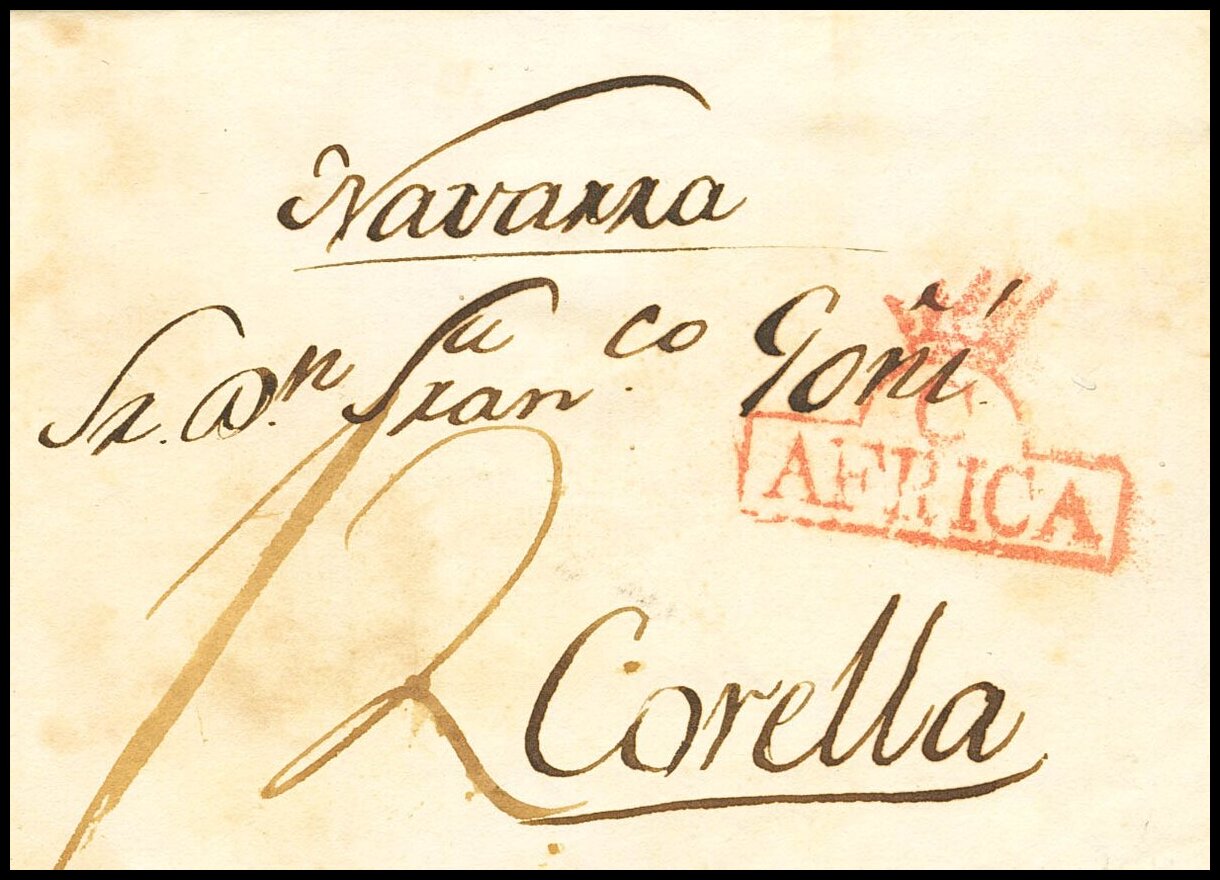 Navarra
Sr. Dn. Franco. Goñi.
C
AFRICA
12
Corella